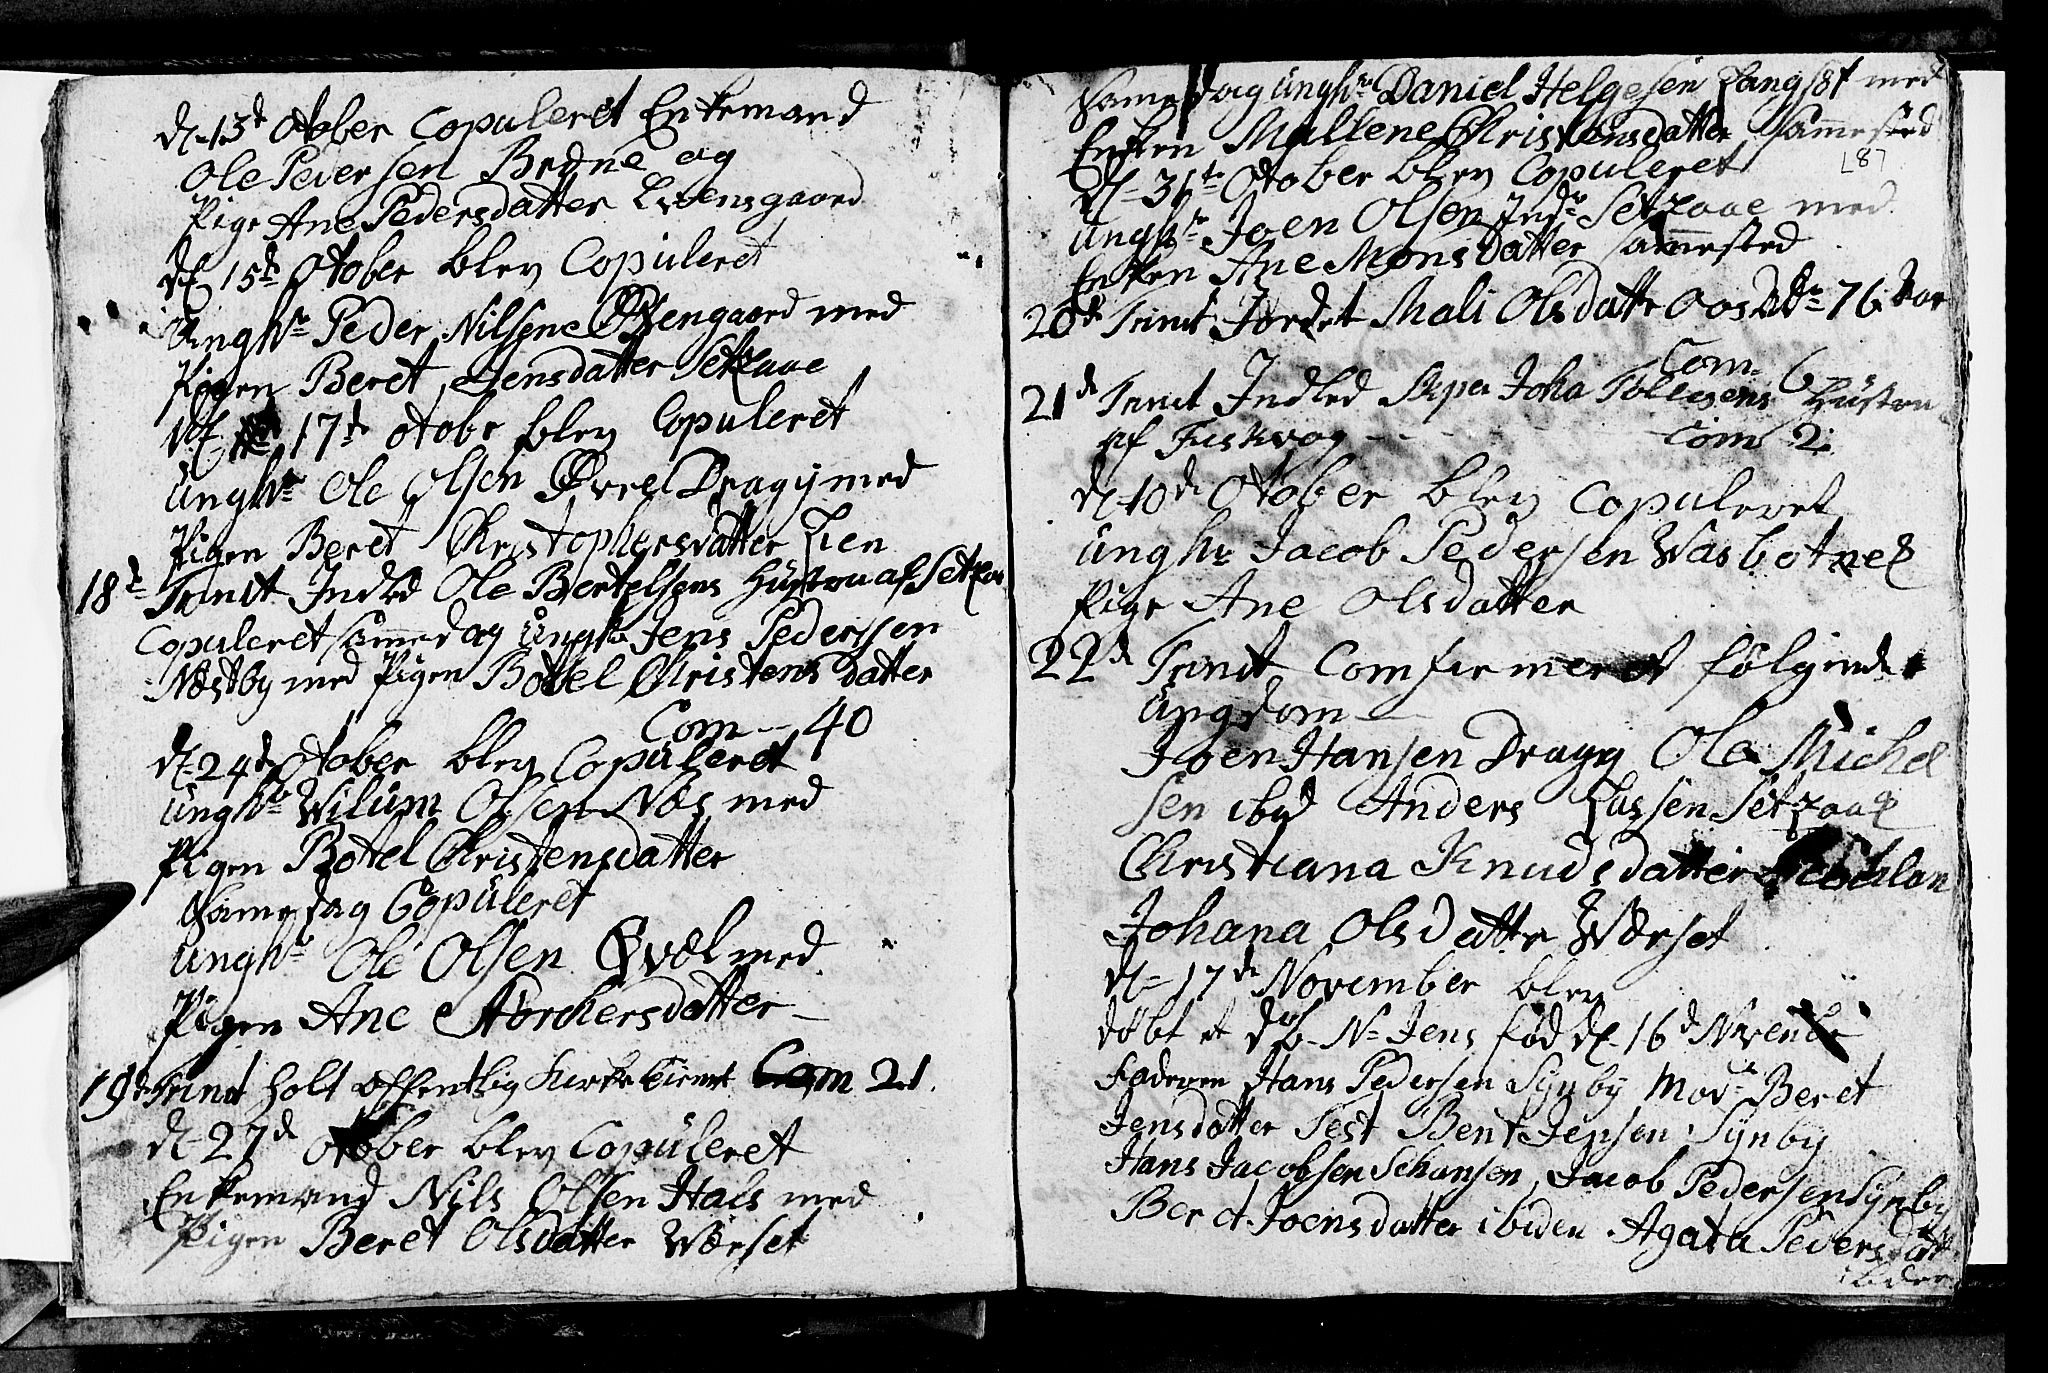 d. 13d Otober Copuleret Enkemand
Ole Pedersen Brøne og
Pige Ane Pedersdatter Evensgaard
d. 15de Otober blev Copuleret
Ungkr Peder Nilsene Øvengaard med
Pigen Beret Jensdatter Setzaae
d. 17de Otobr blev Copuleret
Ungkr Ole Olsen Øvre Dragy med
Pigen Beret Christophersdatter Lien
18de Trinit Indled Ole Bertelsens Hustru af Setzaa
Copuleret samme dag Ungkr Jens Pedersen
Næstby med Pigen Botel Christensdatter
Com - 40
d. 24de Otober blev Copuleret
Ungkr Wilum Olsen Næs med
Pigen Botel Christensdatter
Same dag Copuleret
Ungkr Ole Olsen Qvæl med
Pigen Ane Norchersdatter
19de Trinit holt offentlig Kirke tienst Com 21.
d. 27d Otober blev Copuleret
Enkemand Nils Olsen Hals med
Pigen Beret Olsdatter Wærset
Same dag Ungkr Daniel Helgesen Langset med
Enken Mallene Christensdatter Sammested
87
d. 31te Otober blev Copuleret
Ungkr Joen Olsen Indr Setzaae med
Enken Ane Monsdatter sammested
20de Trinit Jordet Mali Olsdatter 76 aar
Com. 6
21de Trinit Indled Joha Tollesens Hustru
af Fuskvog - - - Com 2.
d. 10de Otober blev Copuleret
Ungkr Jacob Pedersen Wasbotne &
Pige Ane Olsdatter
22de Trinit Comfirmeret følgende
Ungdom
Joen Hansen Dragy Ole Michel
sen ibid Anders Lassen Setzaae
Christiana Knudsdatter
Johana Olsdatter Wærset
d. 17de November blev
døbt et dbn N. Jens fød d. 16d November
Faderen Hans Pedersen Synby Modr Beret
Jensdatter Test Bent Jepsen Synby
Hans Jacobsen Schansen, Jacob Pedersen Synby
Beret Joensdatter ibiden Agata Pedersdatt
ibiden